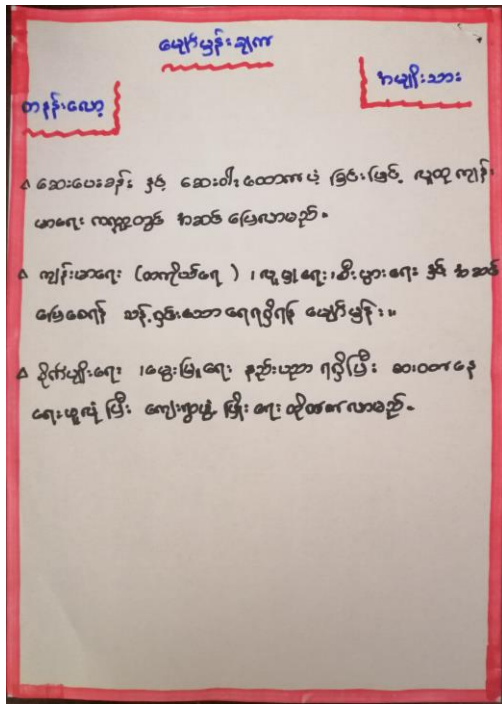 မျှော်မှန်းချက်
အမျိုးသား
တနန်းလော့
ဆေးပေးခန်း နှင့် ဆေးဝါး ထောက်ပံ့ ခြင်းဖြင့် လူထု ကျန်း
မာရေး ကဏ္ဍတွင် အဆင် ပြေလာမည်။
ကျန်းမာရေး (တကိုယ်ရေ) ၊ လူမှုရေး ၊ စီးပွားရေး နှင့် အဆင်
ပြေစေရန် သန့်ရှင်းသော ရေရရှိရန် မျှော်မှန်း။
စိုက်ပျိုးရေး ၊ မွေးမြူရေး နည်းပညာ ရရှိပြီး စားဝတ်နေ
ရေးဖူလုံ ပြီး ကျေးရွာဖွံ့ ဖြိုး ရေး တိုးတက်လာမည်။